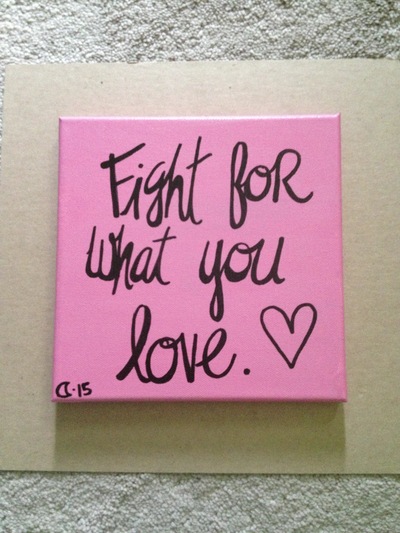 Fight foR
what you
love.
CL·15